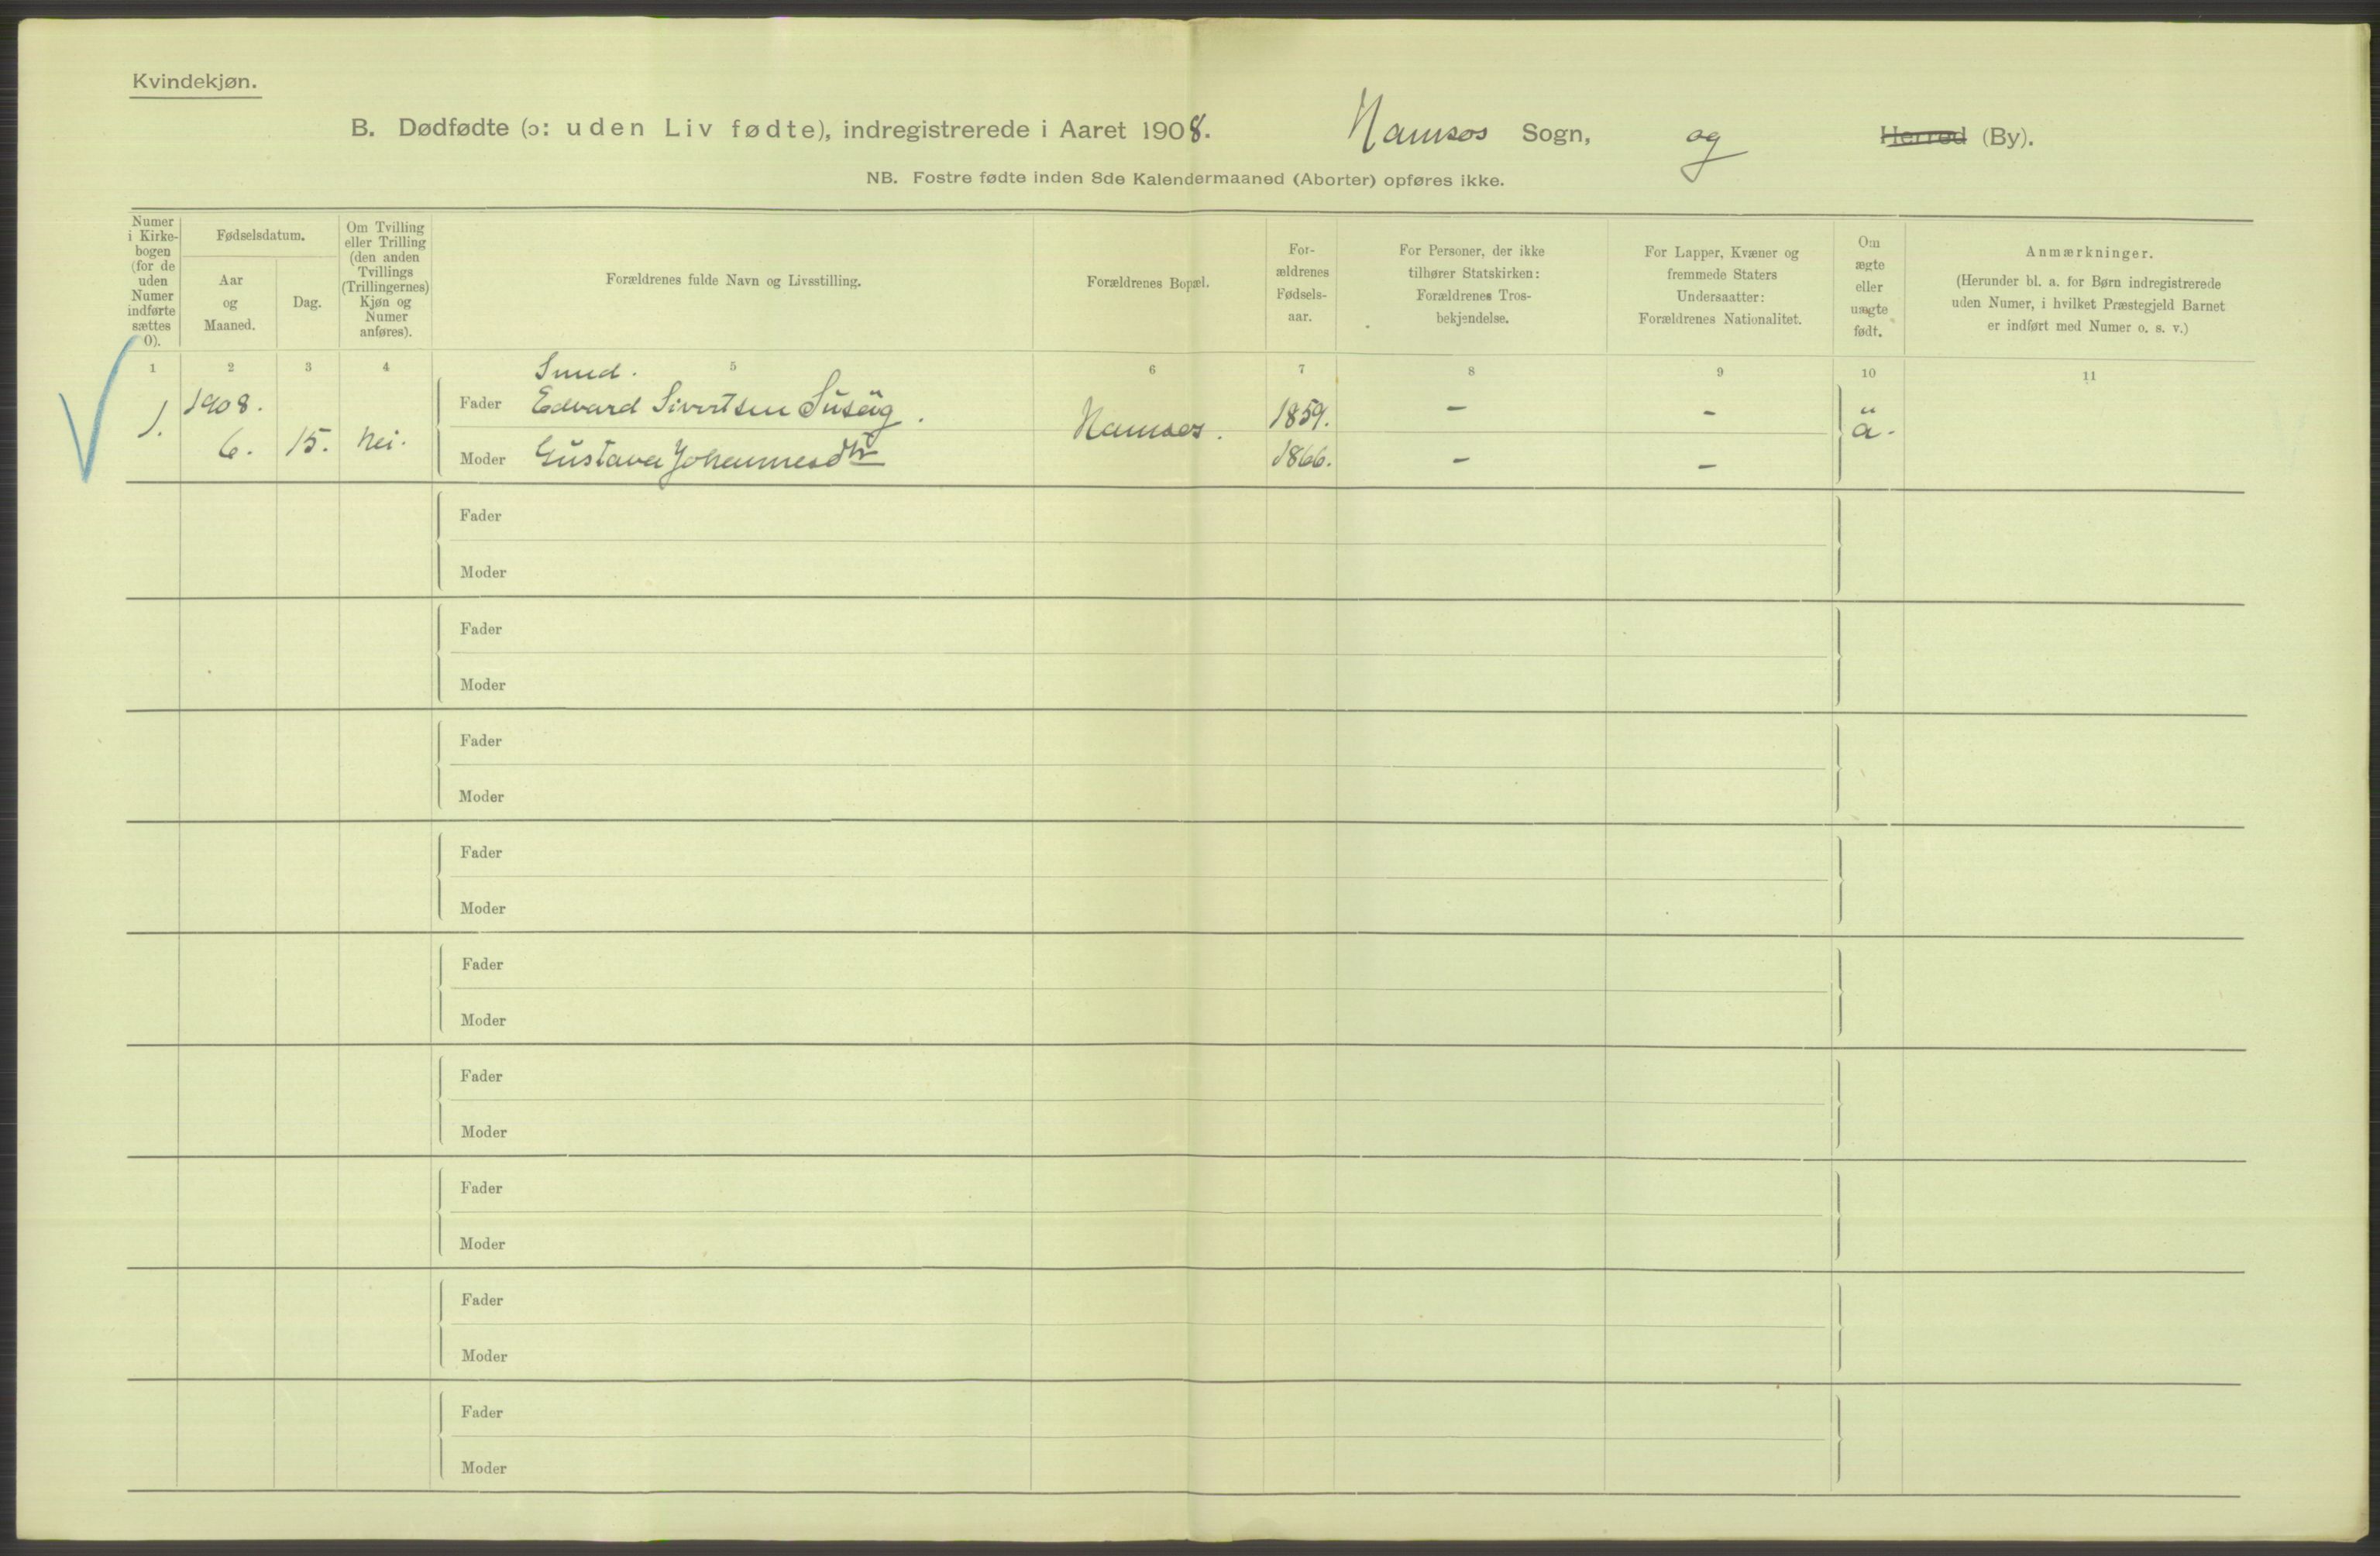 Kvindekjøn.
B. Dødfødte (ɔ: uden Liv fødte), indregistrerede i Aaret 1908. Namsos Sogn, og Herred (By).
NB. Fostre fødte inden 8de Kalendermaaned (Aborter) opføres ikke.
Numer i Kirkebogen (for de uden Numer indførte sættes 0).
Fødselsdatum.
Aar og Maaned.
Dag.
Om Tvilling eller Trilling (den anden Tvillings (Trillingernes) Kjøn og Numer anføres).
Forældrenes fulde Navn og Livsstilling.
Forældrenes Bopæl.
Forældrenes Fødselsaar.
For Personer, der ikke tilhører Statskirken: Forældrenes Trosbekjendelse.
For Lapper, Kvæner og fremmede Staters Undersaatter: Forældrenes Nationalitet.
Om ægte eller uægte født.
Anmærkninger.
(Herunder bl. a. for Børn indregistrerede uden Numer, i hvilket Præstegjeld Barnet er indført med Numer o. s. v.)
1 2 3 4 5 6 7 8 9 10 11
Smed.
1. 1908. Fader Edvard Sivertsen Namsos. 1859. - - ä.
6. 15. Nei. Moder Gustava Johannesdtr 1866. - -
Fader
Moder
Fader
Moder
Fader
Moder
Fader
Moder
Fader
Moder
Fader
Moder
Fader
Moder
Fader
Moder
Fader
Moder